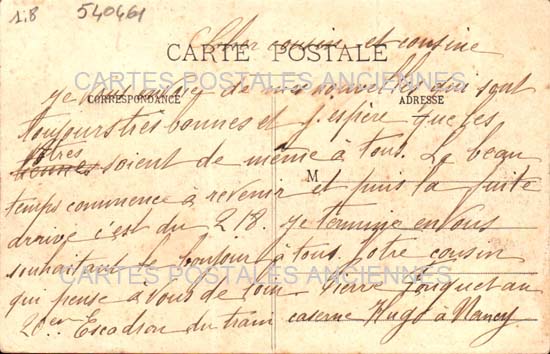 1.8 540461
Cher cousin et cousine
CARTE POSTALE
CARTES POSTALES ANCIENNES
Je vous envoy de mes nouvelles qui sont
CORRESPONDANCE ADRESSE
toujours très bonnes et j'espère que les
votres
soient de même à tous. Le beau
M
temps commence à revenir et puis la fuite
arrive c'est du 218. Je termine en vous
souhaitant le bonjour à tous votre cousin
CARTES POSTALES ANCIENNES
qui pense à vous de loin Pierre
20em Escadron du train caserne Hugo à Nancy